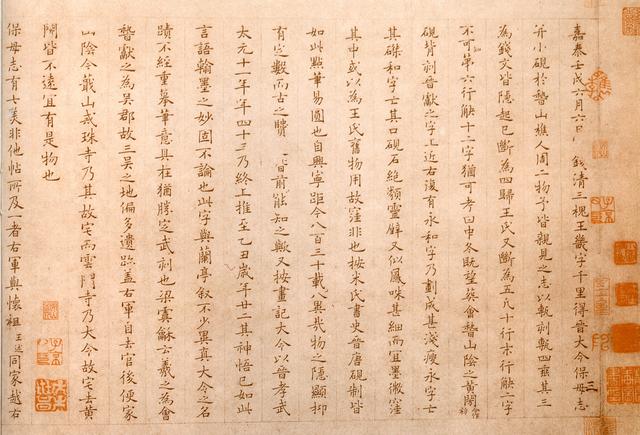 嘉泰壬戌六月六日錢清三槐王畿字千里得晉大令保母志
并小硯於嵇山樵人周二物予皆親見之志以甎刻甎四垂其三
為錢文皆隱起已斷為四歸王氏又斷為五凡十行末行缺二字
不可知第六行缺十二字猶可考曰中冬既望葬會嵇山陰之黃閍
硯背刻晉獻之字上近右復有永和字乃劃成甚淺瘦永字亡
其磔和字亡其口硯石絕類靈壁又似鳳味甚細而宜墨微窪
其中或以為王氏舊物用故窪非也按米氏書史晉唐硯制皆
如此點筆易圓也自興寧距今八百三十載八與我物之隱顯抑
有定數而古之賢前能知之歟又按畫記大令以晉孝武
太元十一年年四十三乃終上推至乙丑歲年廿二其神悟已如此
言語翰墨之妙固不論也此字與蘭亭敘不少異真大令之名
蹟不經重摹筆意具在猶勝定武刻也梁虞龢云羲之為會
嵇獻之為吳郡故三吳之地偏多遺跡蓋右軍自去官後便家
山陰今蕺山戒珠寺乃其故宅而雲門寺乃大令故宅去黃
閍皆不遠宜有是物也
保母志有七美非他帖所及一者右軍與懷祖王述同家越右